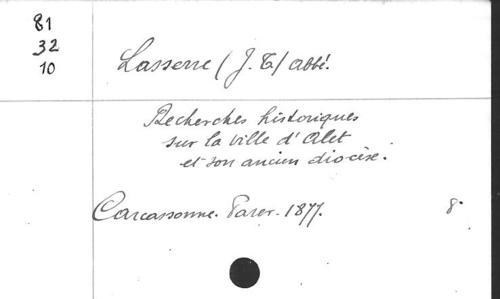 81
32
10
Lasserre (J. T.) abbé.
Recherches historiques
sur la ville d'Alet
et son ancien diocèse.
Carcassonne. Parer. 1877. 8°